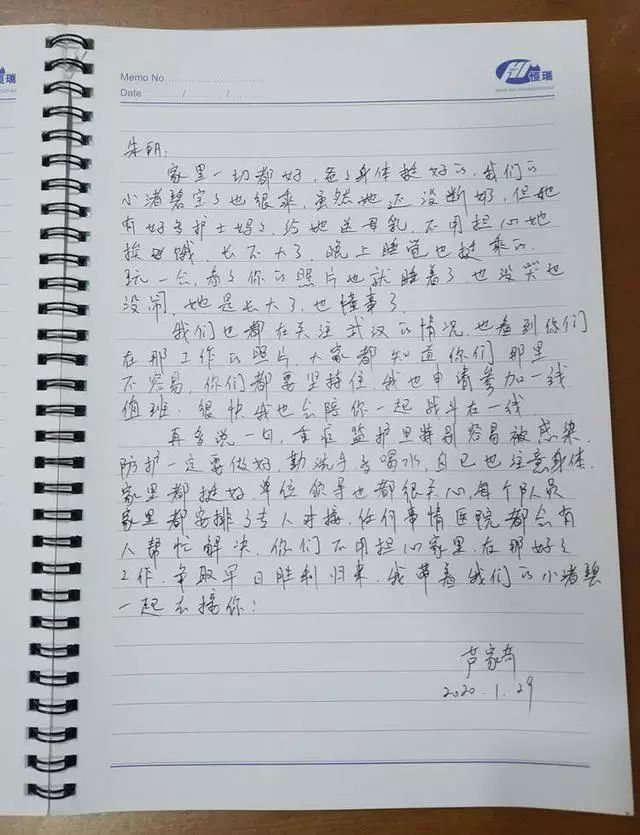 Memo No
Date / /
恒瑞
朱朝:
家里一切都好,爸爸身体挺好的,我们的
小渚碧宝宝也很乖,虽然她还没断奶,但她
有好多护士妈妈给她送母乳,不用担心她
挨饿,长不大了,晚上睡觉也挺乖的,
玩一会,看了你的照片也就睡着了,也没哭也
没闹,她是长大了,也懂事了。
我们也都在关注武汉的情况,也看到你们
在那工作的照片,大家都知道你们那里
不容易,你们都要坚持住,我也申请参加一线
值班,很快我也会陪你一起战斗在一线。
再多说一句,重症监护里特别容易被感染,
防护一定要做好,勤洗手多喝水,自己也注意身体,
家里都挺好,单位领导也都很关心,每个队员
家里都安排了专人对接,任何事情医院都会有
人帮忙解决,你们不用担心家里,在那好好
工作,争取早日胜利归来,我带着我们的小渚碧
一起去接你!
芦家奇
2020.1.29